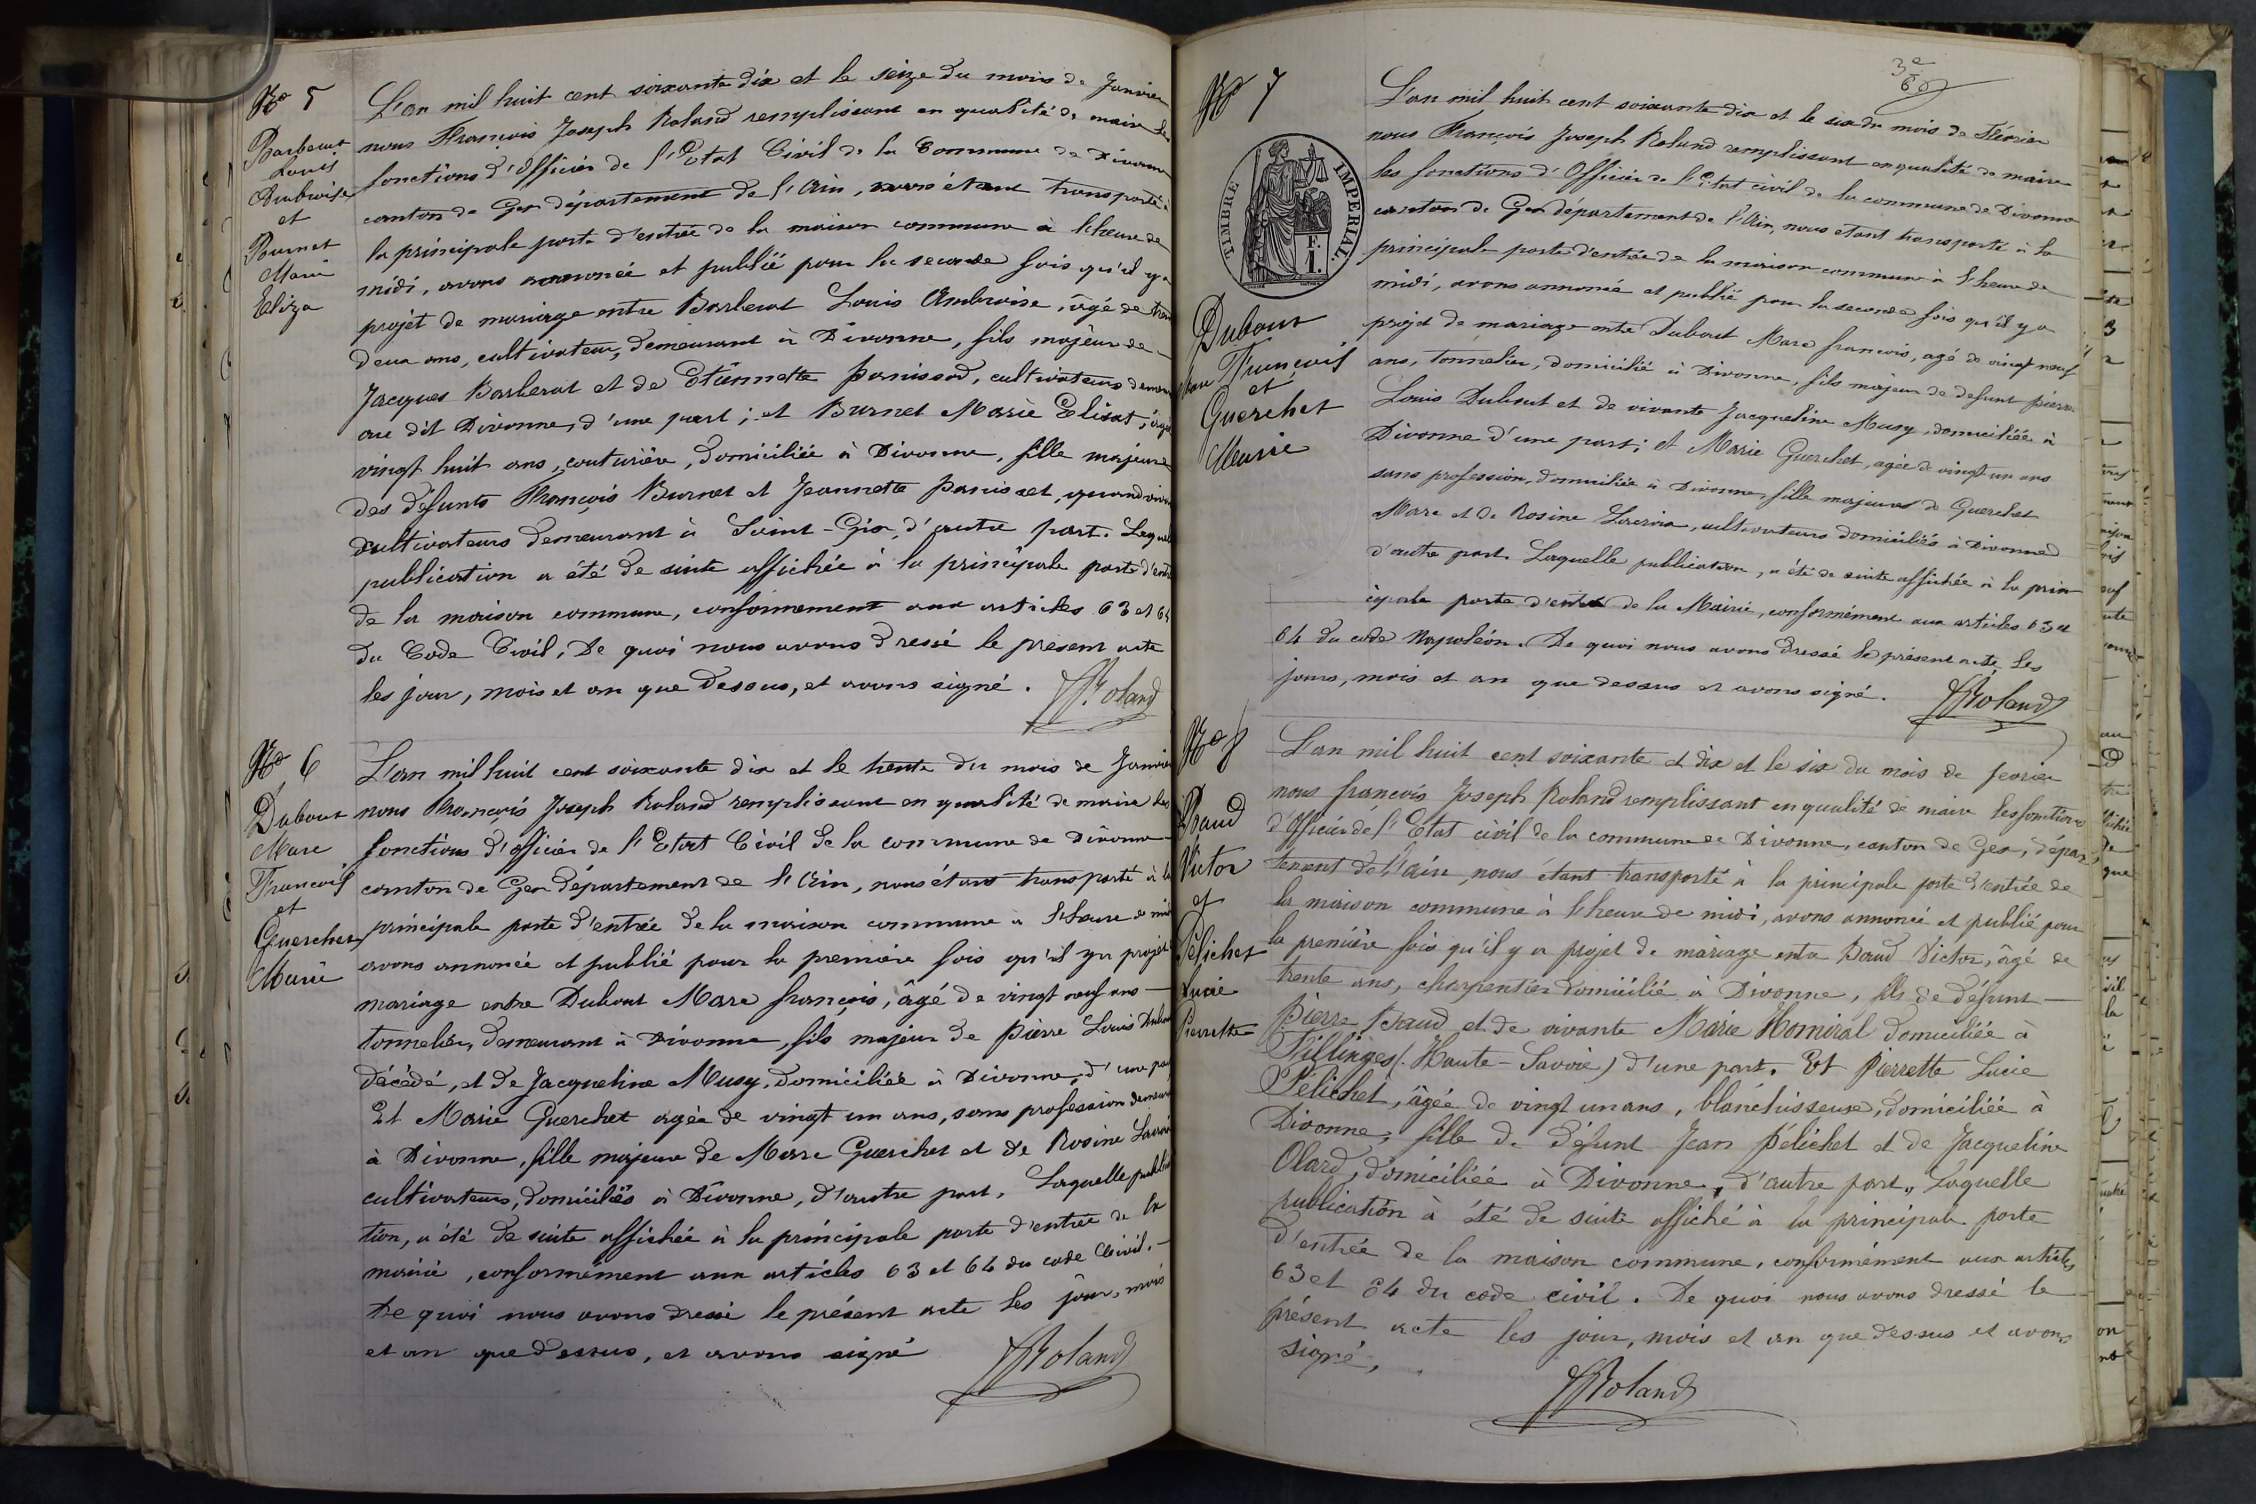 No 5
Barberat
Louis
Ambroise
et
Burnet
Marie
Eliza
L'an mil huit cent soixante dix et le seize du mois de Janvier
nous François Joseph Roland remplissant en qualité de maire les
fonctions d'Officier de l'Etat Civil de la Commune de Divonne
canton de Gex département de l'Ain, nous étant transporté à
la principale porte d'entrée de la maison commune à l'heure de
midi, avons annoncé et publié pour la seconde fois qu'il y a
projet de mariage entre Barberat Louis Ambroise, âgé de trente
deux ans, cultivateur, demeurant à Divonne, fils majeur de
Jacques Barberat et de Etiennette Panissod, cultivateurs demeur
au dit Divonne, d'une part ; et Burnet Marie Elisat, âgée
vingt huit ans, couturière, domiciliée à Divonne, fille majeure
des défunts François Burnet et Jeannette Panisset, quand vivai
cultivateurs demeurant à Saint-Gix, d'autre part. Laquelle
publication a été de suite affichée à la principale porte d'entrée
de la maison commune, conformement aux articles 63 et 64
du Code Civil, De quoi nous avons dressé le présent acte
les jour, mois et an que dessus, et avons signé.
Roland
No 6
Dubout
Marc
François
et
Guerchet
Marie
L'an mil huit cent soixante dix et le trente du mois de Janvier
nous François Joseph Roland remplissant en qualité de maire les
fonctions d'officier de l'Etat Civil de la commune de Divonne
canton de Gex département de l'Ain, nous étant transporté à la
principale porte d'entrée de la maison commune à l'heure de midi
avons annoncé et publié pour la première fois qu'il y a projet
mariage entre Dubout Marc françois, âgé de vingt neuf ans
tonnelier, demeurant à Divonne, fils majeur de Pierre Louis Dubout
décédé, et de Jacqueline Musy, domiciliée à Divonne, d'une part
Et Marie Guerchet agée de vingt un ans, sans profession demeur
à Divonne, fille majeure de Marc Guerchet et de Rosine Lacroix
cultivateurs, domiciliés à Divonne, d'autre part. Laquelle publica
tion, a été de suite affichée à la principale porte d'entrée de la
mairie, conformément aux articles 63 et 64 du code Civil.
De quoi nous avons dressé le présent acte les jour, mois
et an que dessus, et avons signé
Roland
3e
60
No 7
TIMBRE IMPERIAL.
F.
I.
Dubout
Marc François
et
Guerchet
Marie
L'an mil huit cent soixante dix et le six du mois de Février
nous François Joseph Roland remplissant en qualité de maire
les fonctions d'Officier de l'état civil de la commune de Divonne
canton de Gex département de l'Ain, nous étant transporté à la
principale porte d'entrée de la maison commune à l'heure de
midi, avons annoncé et publié pour la seconde fois qu'il y a
projet de mariage entre Dubout Marc françois, agé de vingt neuf
ans, tonnelier, domicilié à Divonne, fils majeur de defunt pierre
Louis Dubout et de vivante Jacqueline Musy, domiciliée à
Divonne d'une part ; et Marie Guerchet, agée de vingt un ans
sans profession, domiciliée à Divonne, fille majeure de Guerchet
Marc et de Rosine Lacroix, cultivateurs domiciliés à Divonne
d'autre part. Laquelle publication, a été de suite affichée à la prin
cipale porte d'entrée de la Mairie, conformément aux articles 63 et
64 du code Napoléon. De quoi nous avons dressé le présent acte les
jours, mois et an que dessus et avons signé.
Roland
No 8
Baud
Victor
et
Pélichet
Lucie
Pierrette
L'an mil huit cent soixante et dix et le six du mois de fevrier
nous françois Joseph Roland remplissant en qualité de maire les fonctions
d'Officier de l'Etat civil de la commune de Divonne, canton de Gex, dépar
tement de l'ain, nous étant transporté à la principale porte d'entrée de
la maison commune à l'heure de midi, avons annoncé et publié pour
la première fois qu'il y a projet de mariage entre Baud Victor, âgé de
trente ans, charpentier domicilié à Divonne, fils de défunt
Pierre Baud et de vivante Marie Homiral domiciliée à
Fillinges (Haute-Savoie) d'une part. Et Pierrette Lucie
Pélichet, âgée de vingt un ans, blanchisseuse, domiciliée à
Divonne, fille de défunt Jean Pélichet et de Jacqueline
Olard, domiciliée à Divonne, d'autre part, Laquelle
publication à été de suite affiché à la principale porte
d'entrée de la maison commune, conformément aux articles
63 et 64 du code civil. De quoi nous avons dressé le
présent acte les jour, mois et an que dessus et avons
signé,
Roland